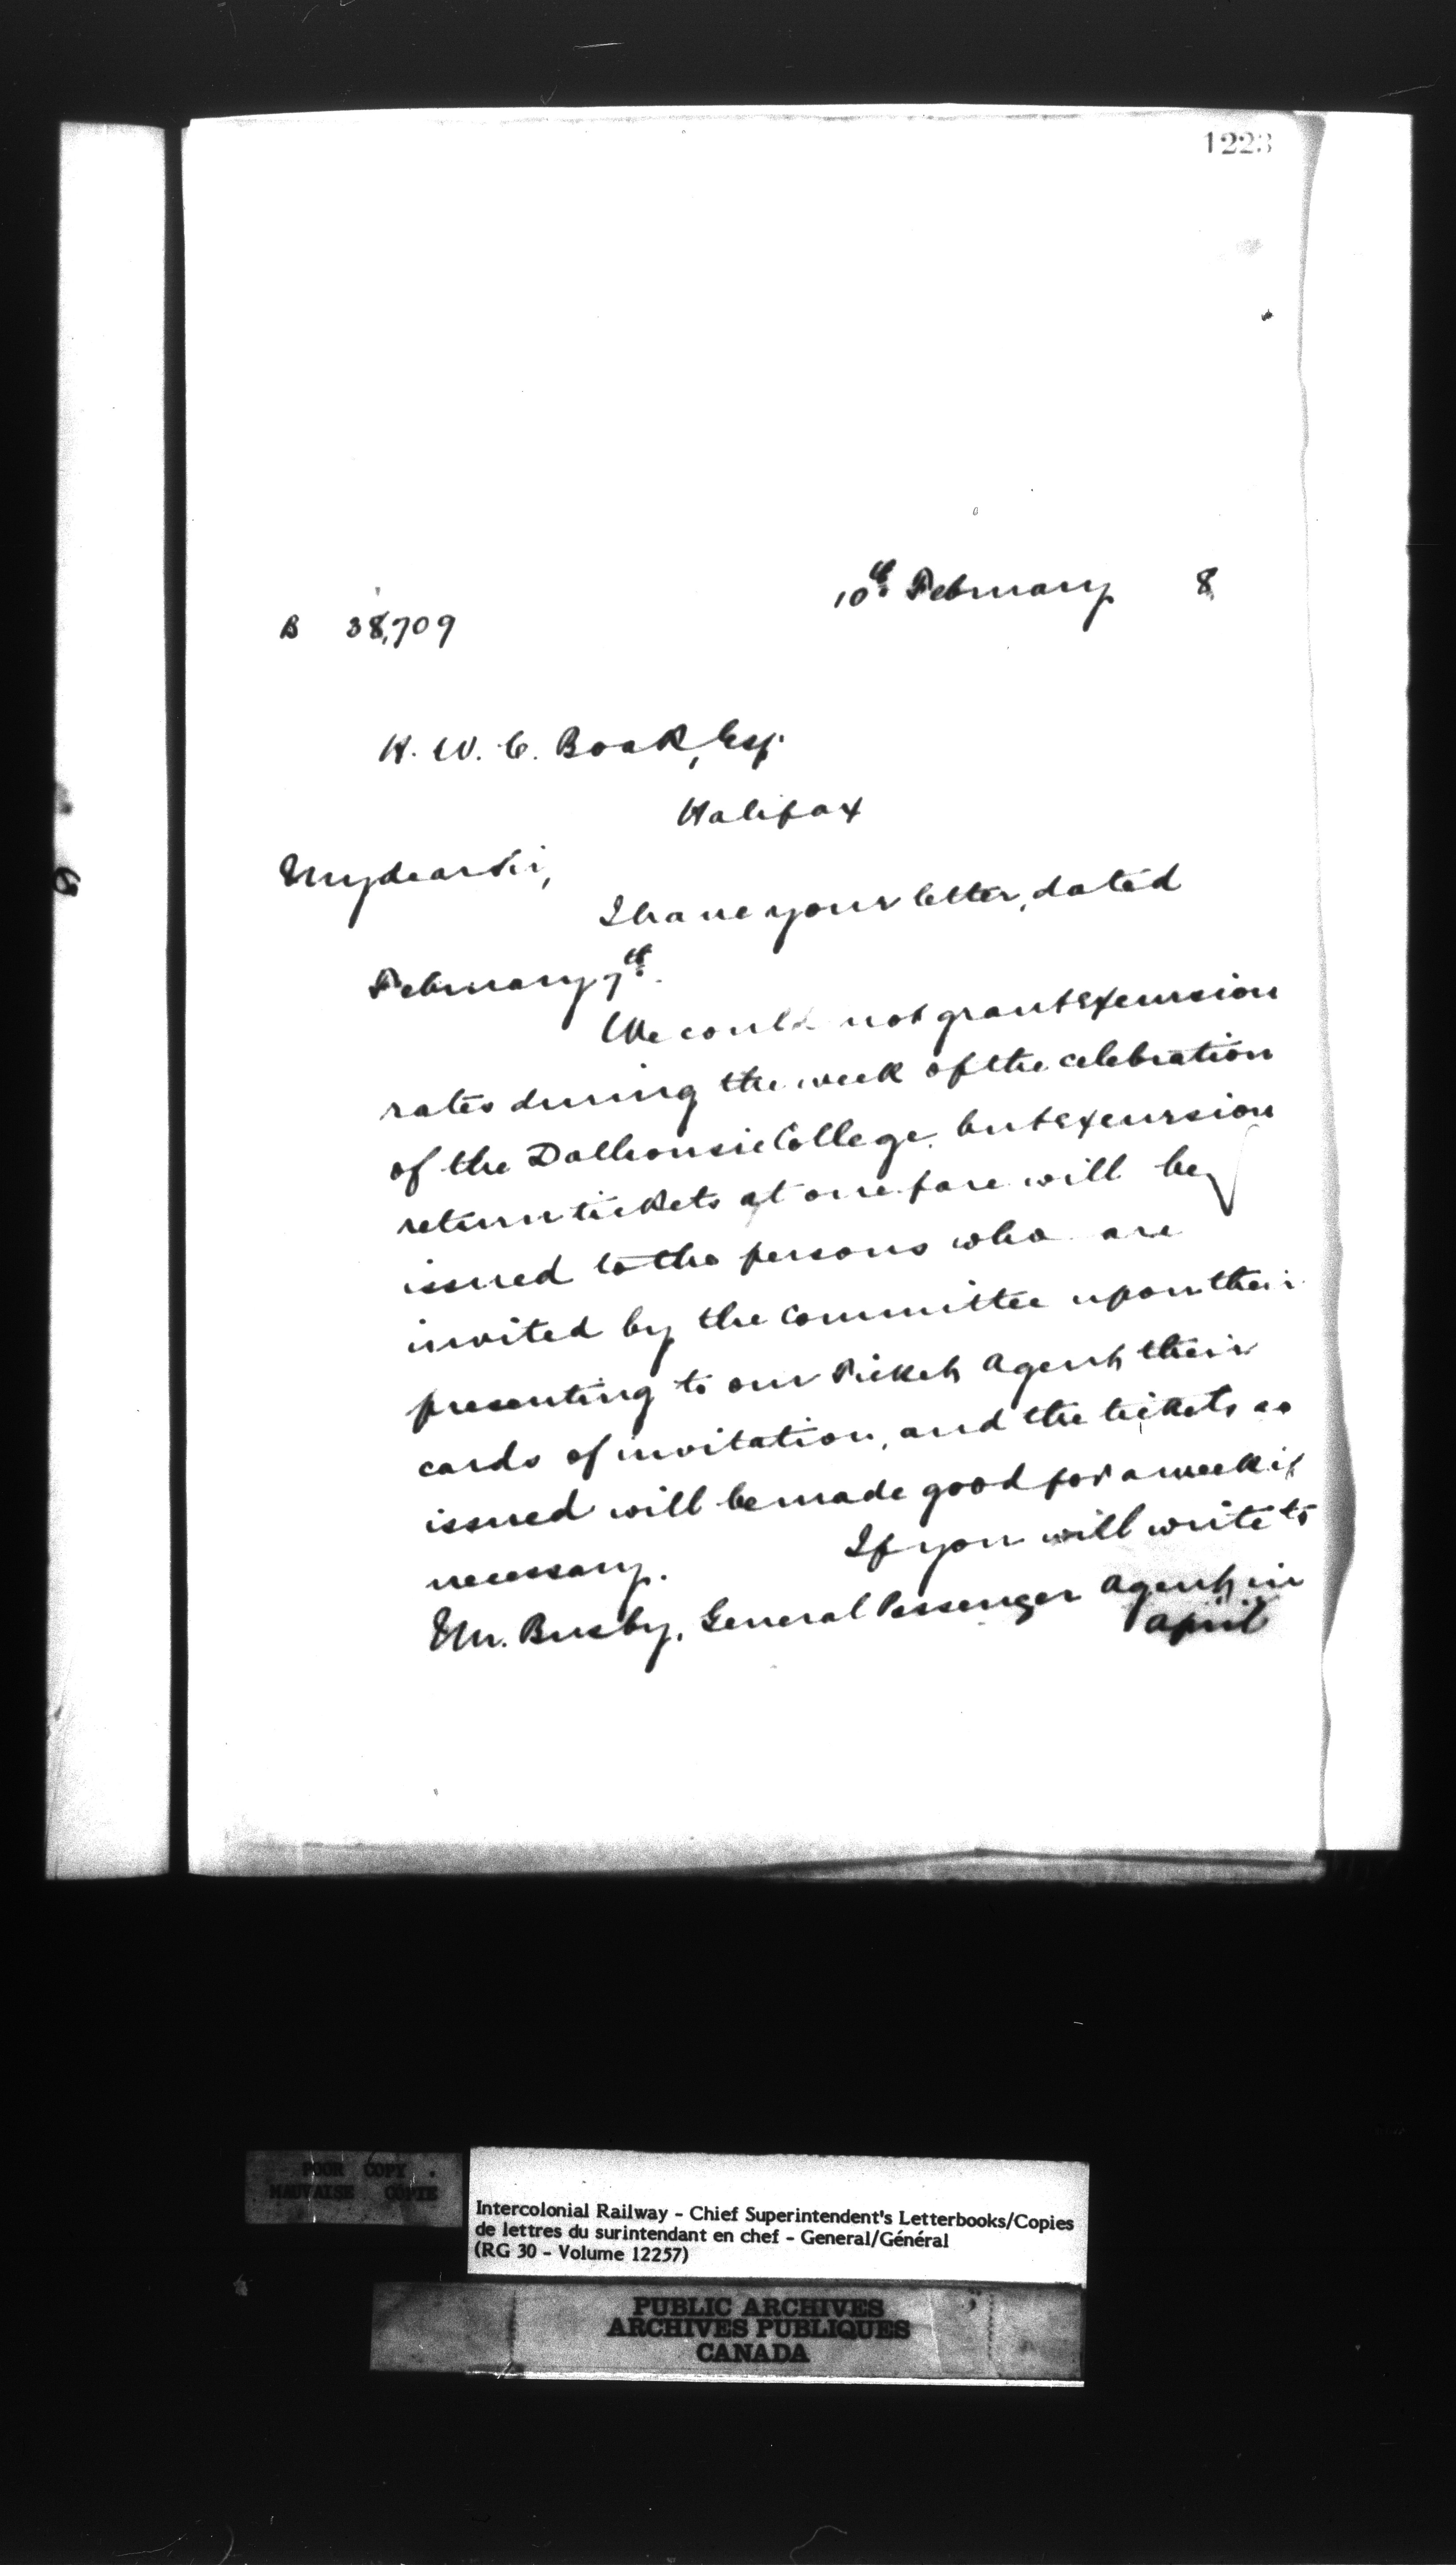 1223
10th February 8
B 38,709
H. W. C. Boak, Esq.
Halifax
My dear Sir,
I have your letter, dated
February 7th.
We could not grant excursion
rates during the week of the celebration
of the Dalhousie College, but excursion
return tickets at one fare will be
issued to the persons who are
invited by the Committee upon their
presenting to our Ticket Agent their
cards of invitation, and the tickets so
issued will be made good for a week if
necessary. If you will write to
Mr. Busby, General Passenger Agent, in
April
POOR COPY
MAUVAISE COPIE
Intercolonial Railway - Chief Superintendent's Letterbooks/Copies
de lettres du surintendant en chef - General/Général
(RG 30 - Volume 12257)
PUBLIC ARCHIVES
ARCHIVES PUBLIQUES
CANADA